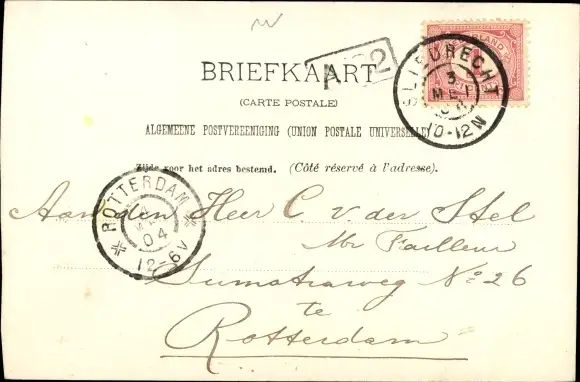 BRIEFKAART
(CARTE POSTALE)
ALGEMEENE POSTVEREENIGING (UNION POSTALE UNIVERSELLE)
Zijde voor het adres bestemd. (Côté réservé à l'adresse).
SLIEDRECHT
3
MEI
10-12N
ROTTERDAM
4
04
12-6V
Aan den Heer C. v. der Stel
Sumatraweg No 26
te
Rotterdam